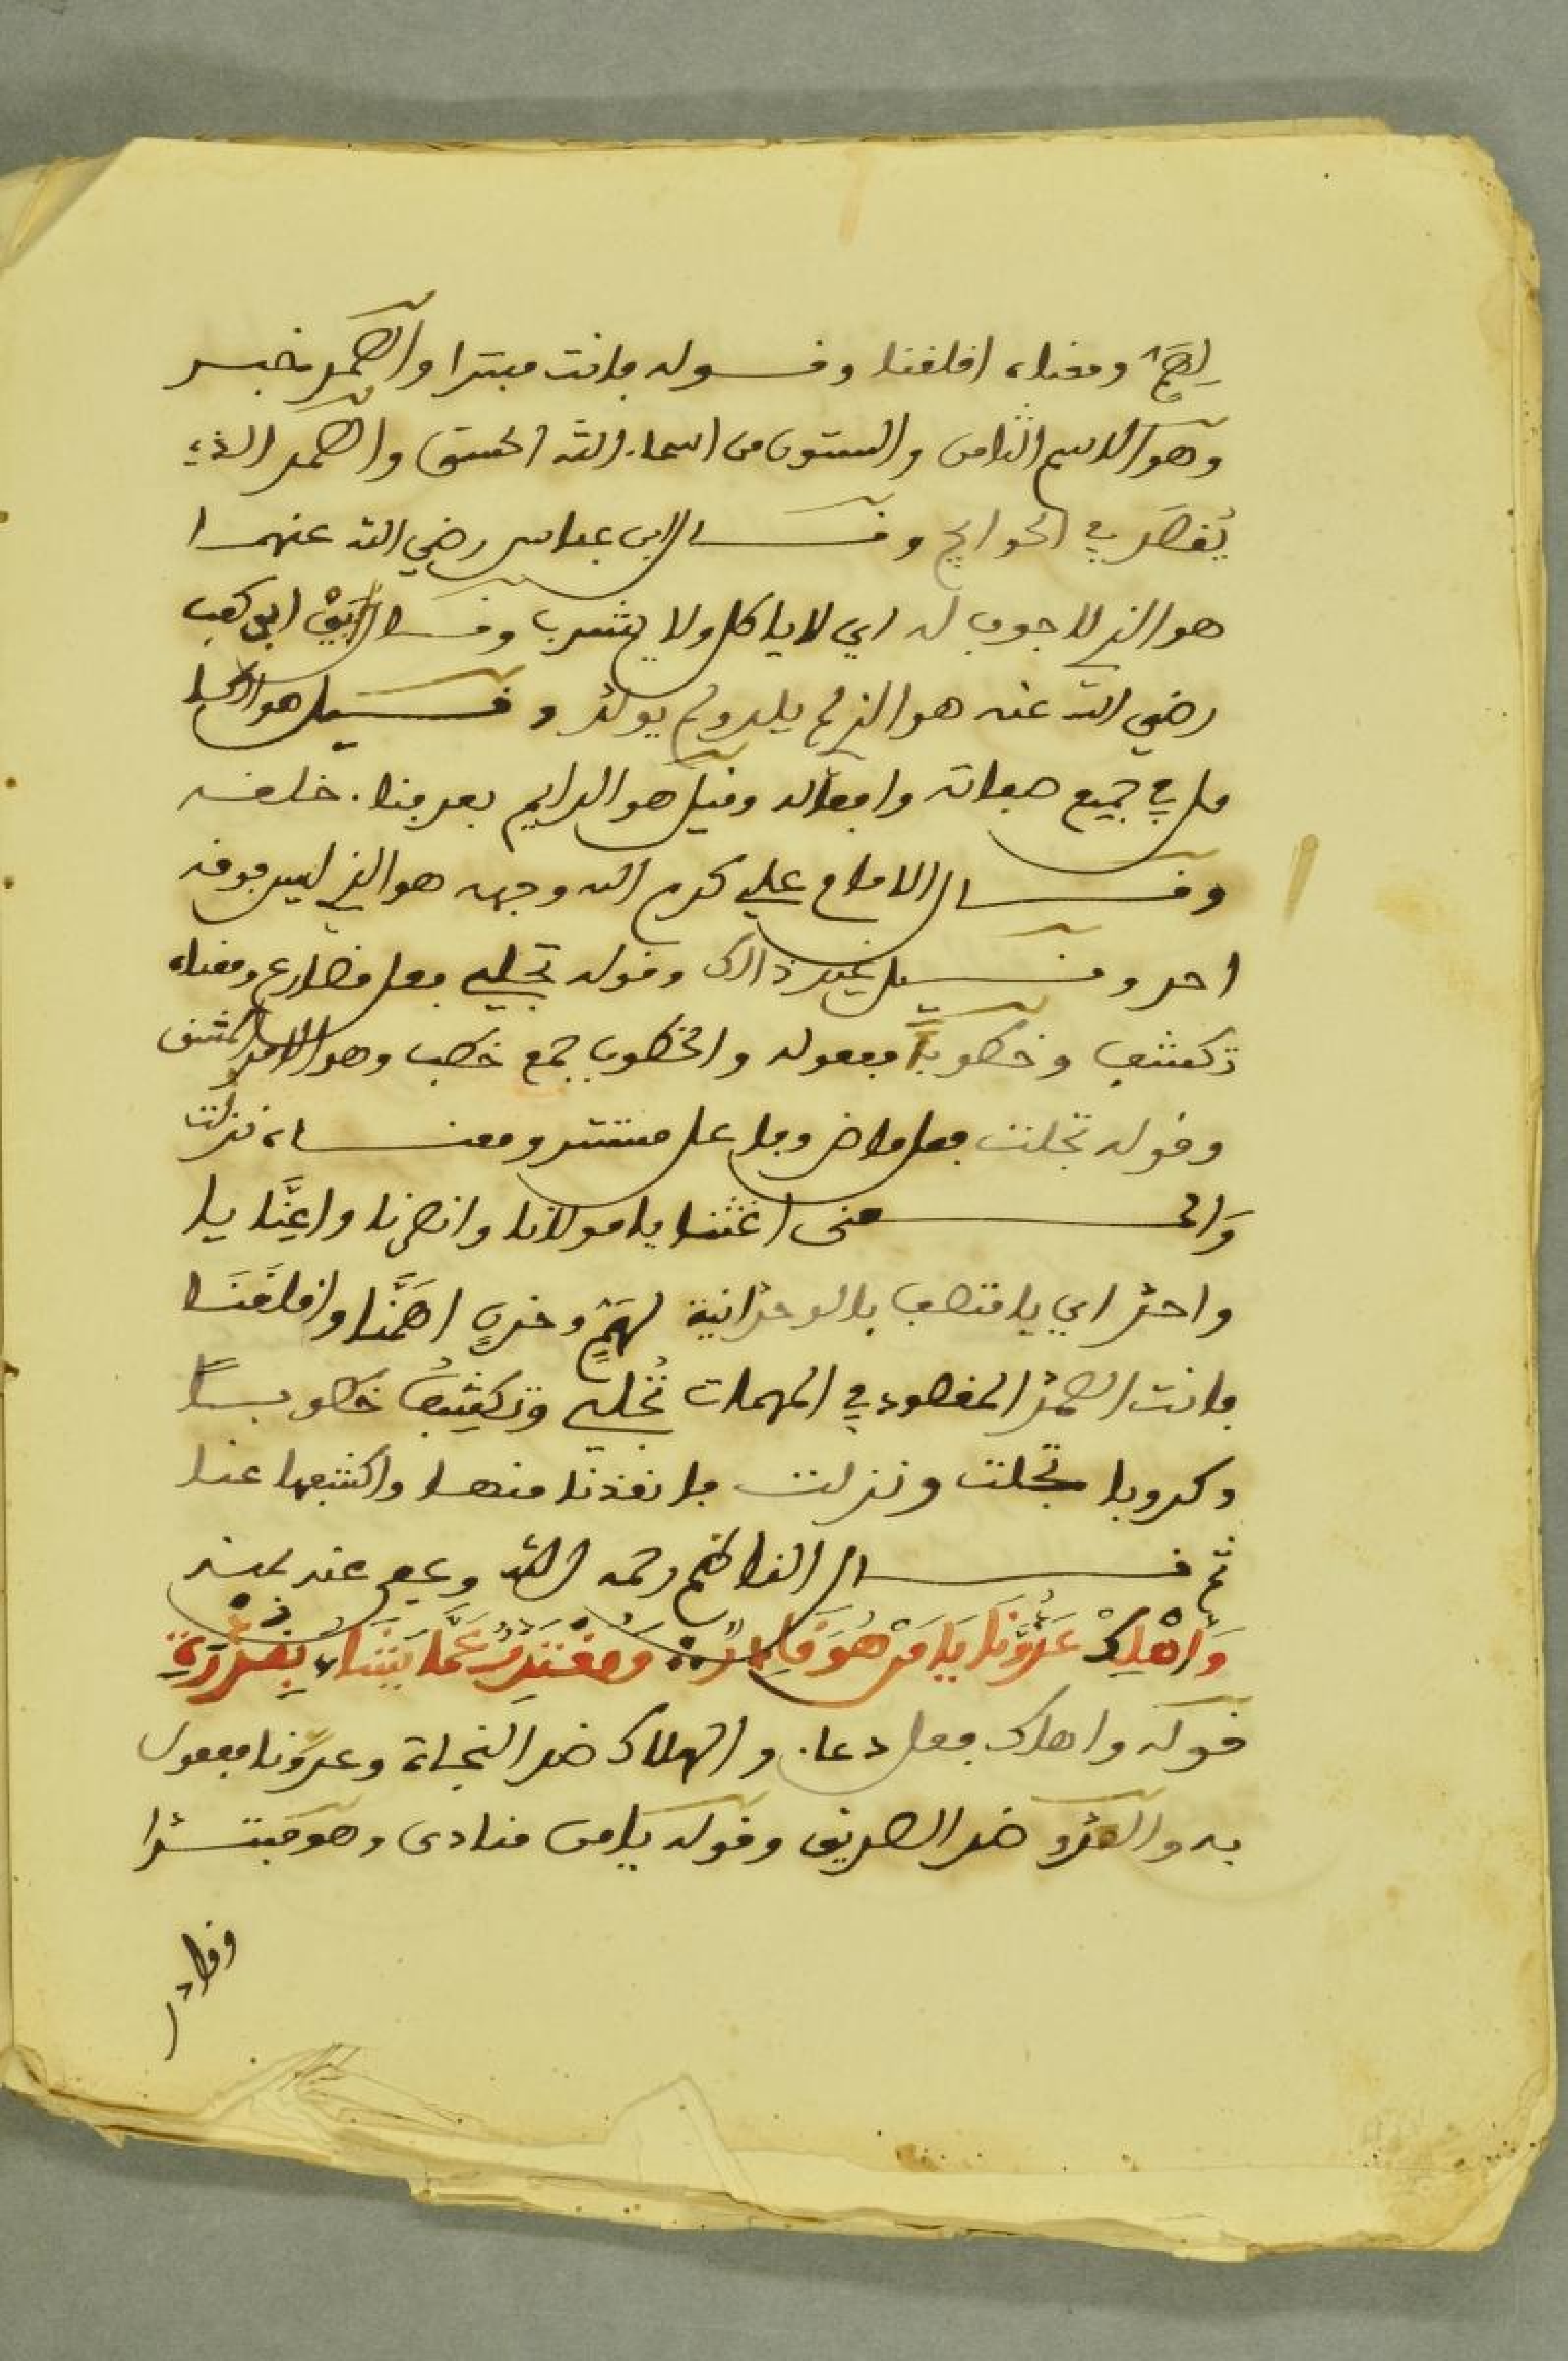 لِهَمٍّ ومعناه اقلقنا وقوله فانت مبتدا والصمد خبر
وهو الاسم الثامن والستون من اسماء الله الحسنى والصمد الذي
يُقصَد في الحوايج وقال ابن عباس رضي الله عنهما
هو الذي لا جوف له اي لا ياكل ولا يشرب وقال ابيّ ابن كعب
رضي الله عنه هو الذي لم يلد ولم يولد وقيل هو الكا
مل في جميع صفاته وافعاله وقيل هو الدايم بعد فناء خلقه
وقال الامام علي كرم الله وجهه هو الذي ليس فوقه
احد وقيل غير ذالك وقوله تجلي فعل مضارع ومعناه
تكشف وخطوباً مفعوله والخطوب جمع خطب وهو الامر
وقوله تجلت فعل ماض وفاعل مستتر ومعناه نزلت
وَالمعنى اغثنا يا مولانا وانصرنا واعِنَّا يا
واحد اي يا متصف بالوحدانية لهَمٍّ وحزنٍ اهَمَّنا واقلقَنَا
فانت الصمد المقصود في المهمات تُجلي وتكشِفُ خطوباً
وكروبا تجلت ونزلت فانقذنا منها واكشفها عنا
ثم قال الناظم رحمه الله وعفى عنه بمنه
وَاَهْلِكْ عَدُوَّنَا يَا مَنْ هُوَ قَادِرٌ وَمُقْتَدِرٌ عَمَّا يَشَاءُ بِقُدْرَةِ
قوله واهلك فعل دعاء والهلاك ضد النجاة وعدوّنا مفعول
به والعدوّ ضد الصديق وقوله يا من منادى وهو مبتدا
وقادر